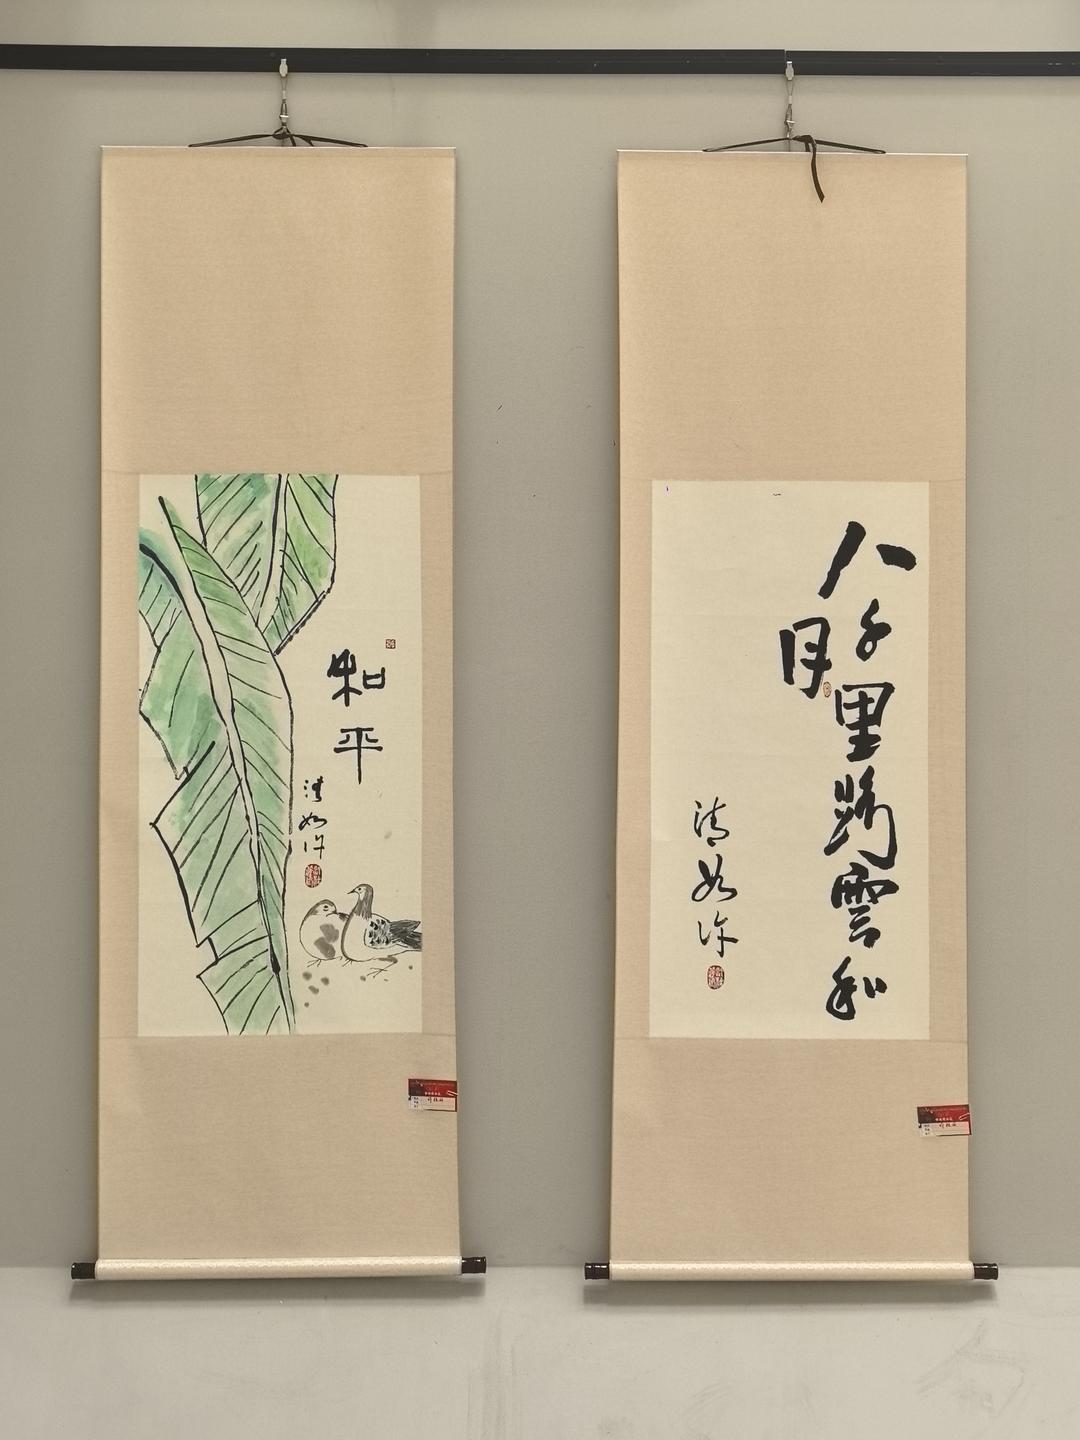 和平
清如许
八千里路雲和
月
清如许